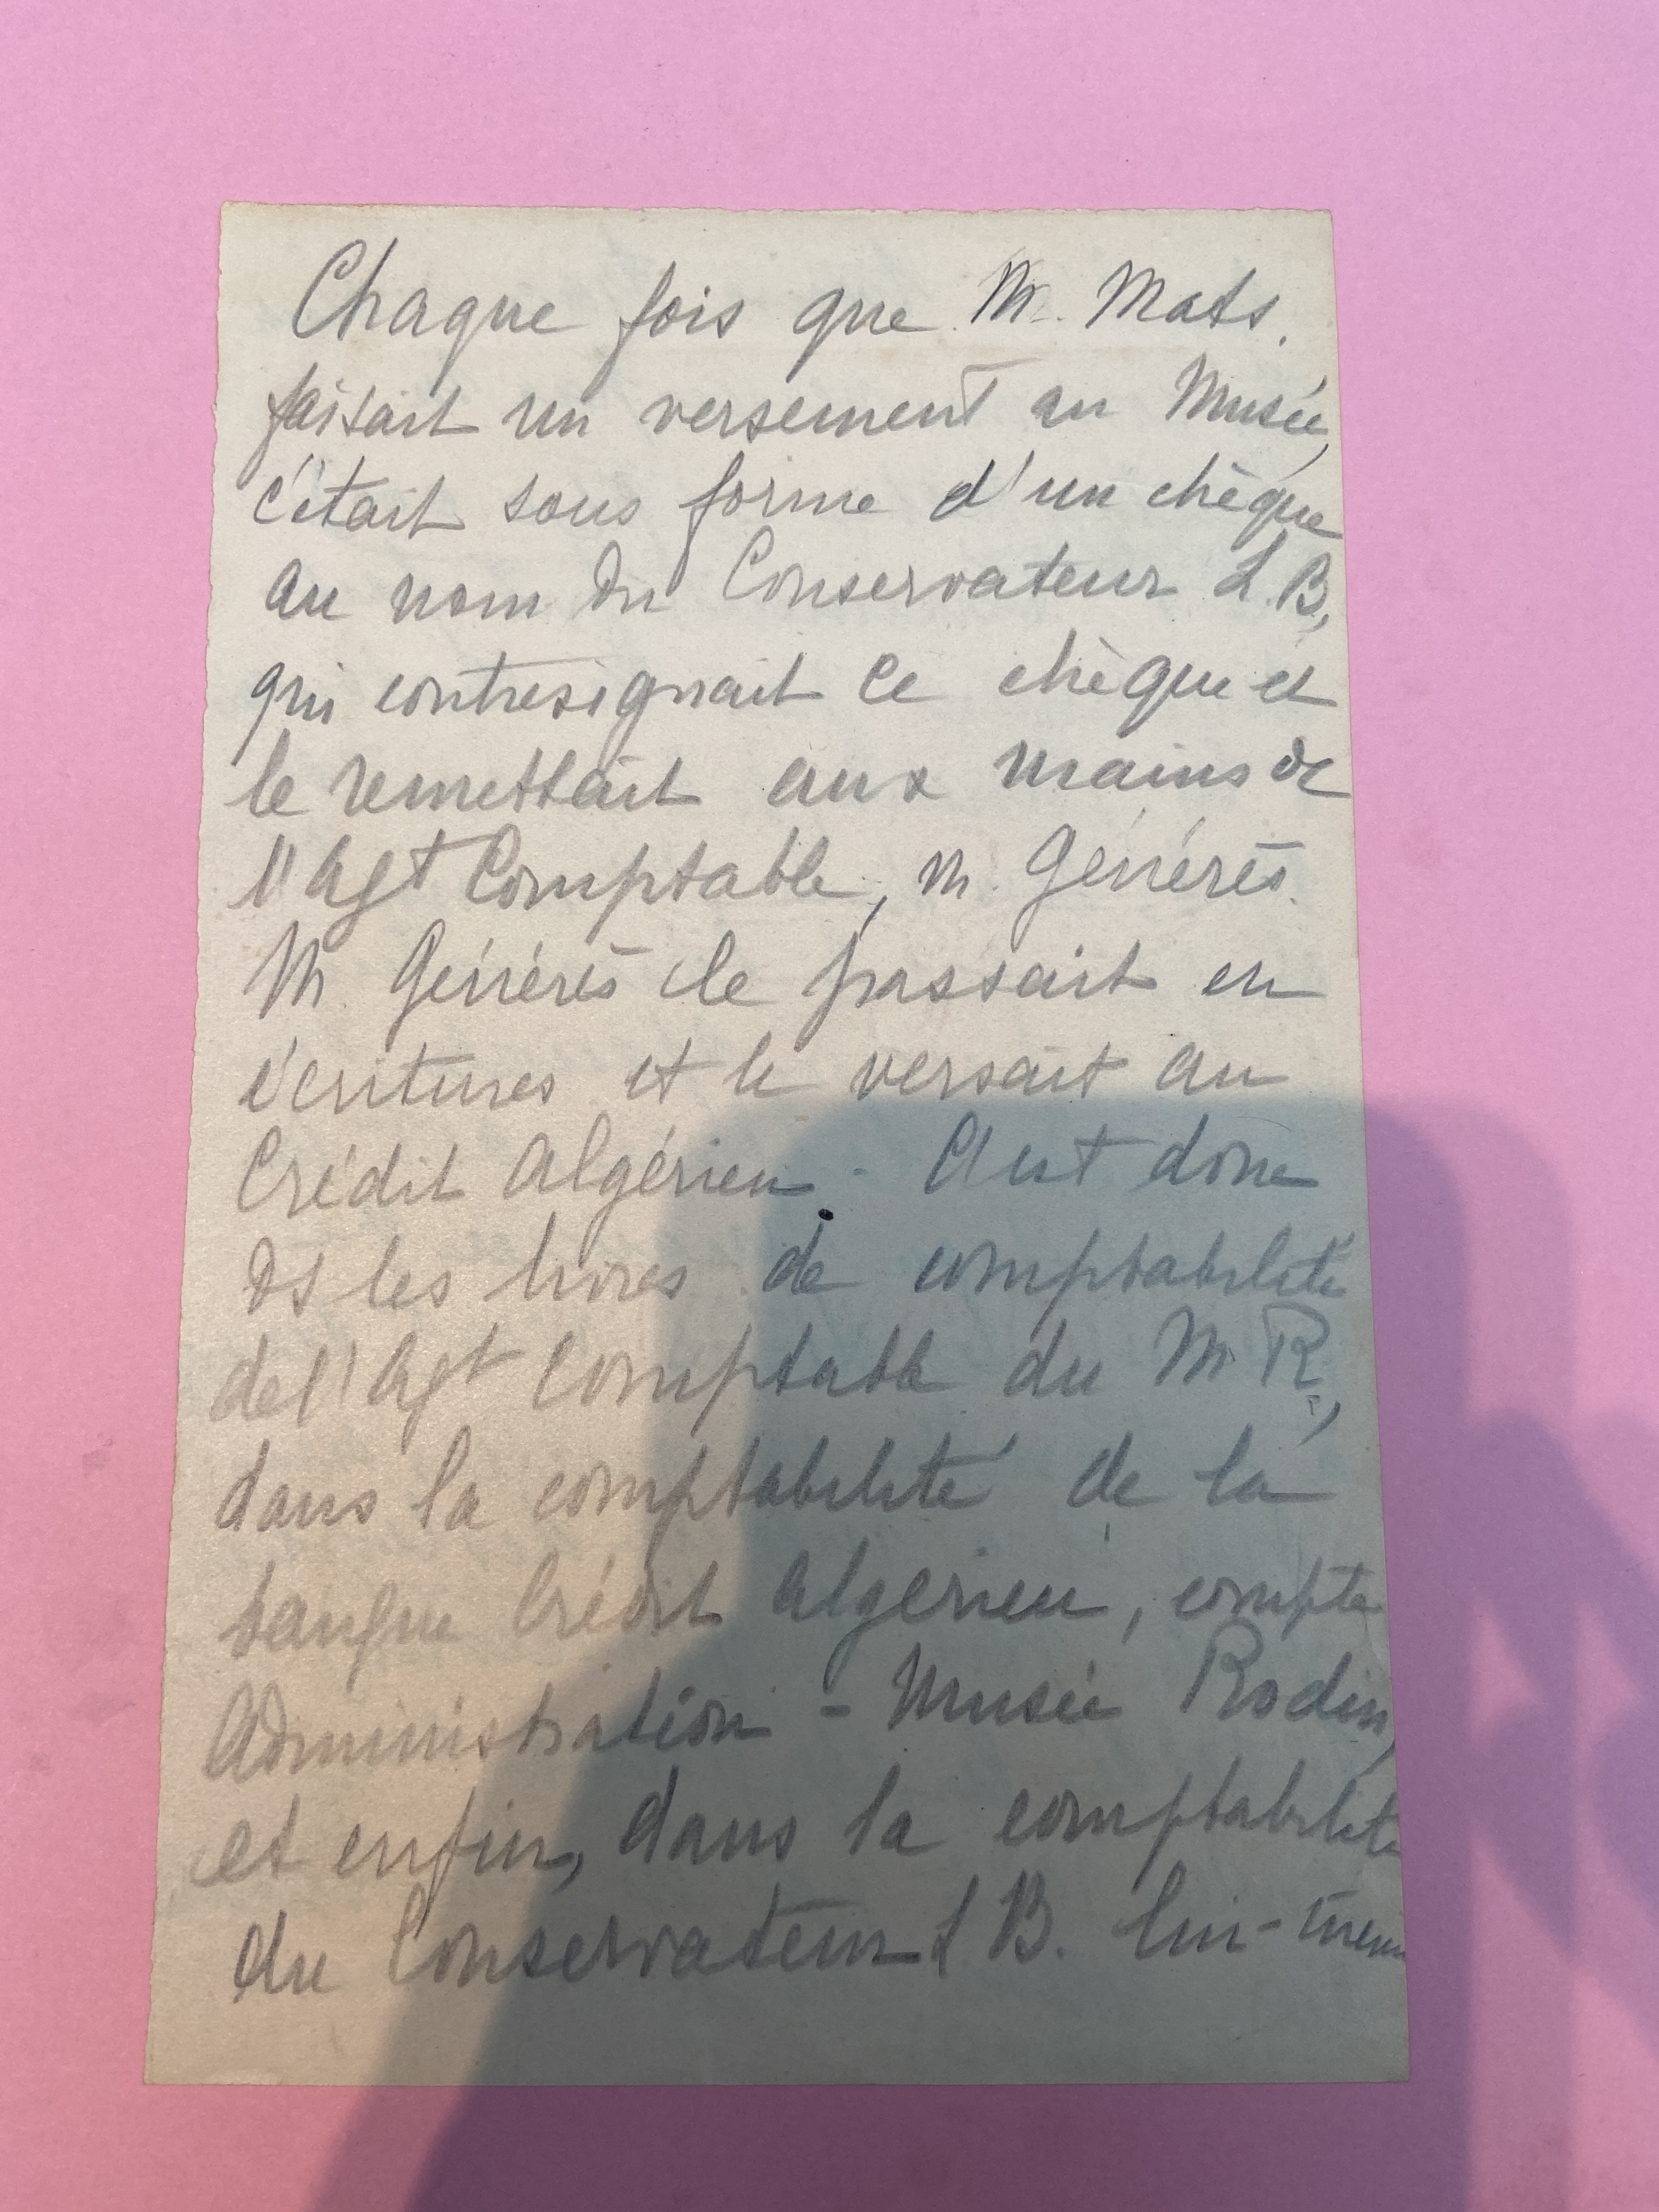 Chaque fois que M. Mats.
faisait un versement au Musée,
c'était sous forme d'un chèque
au nom du Conservateur L. B.,
qui contresignait ce chèque et
le remettait aux mains de
l'Agt Comptable, M. Générès.
M. Générès le passait en
écritures et le versait au
Crédit Algérien - C'est donc
ds les livres de comptabilité
de l'Agt Comptable du M R.,
dans la comptabilité de la
banque Crédit Algérien, compte
Administration - Musée Rodin,
et enfin, dans la comptabilité
du Conservateur L B. lui-même